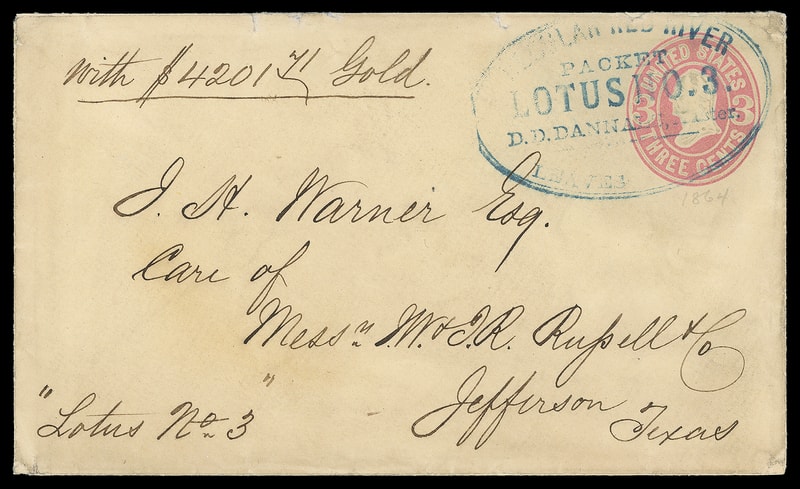 with $4201 71/ Gold.
RED RIVER
PACKET
LOTUS NO.3.
D.D. DANNALS, Master.
LEAVES
UNITED STATES
3 3
THREE CENTS
1864.
J. H. Warner Esq.
Care of
Messrs. W. & J. R. Russell & Co
Jefferson
Texas
"Lotus No 3"